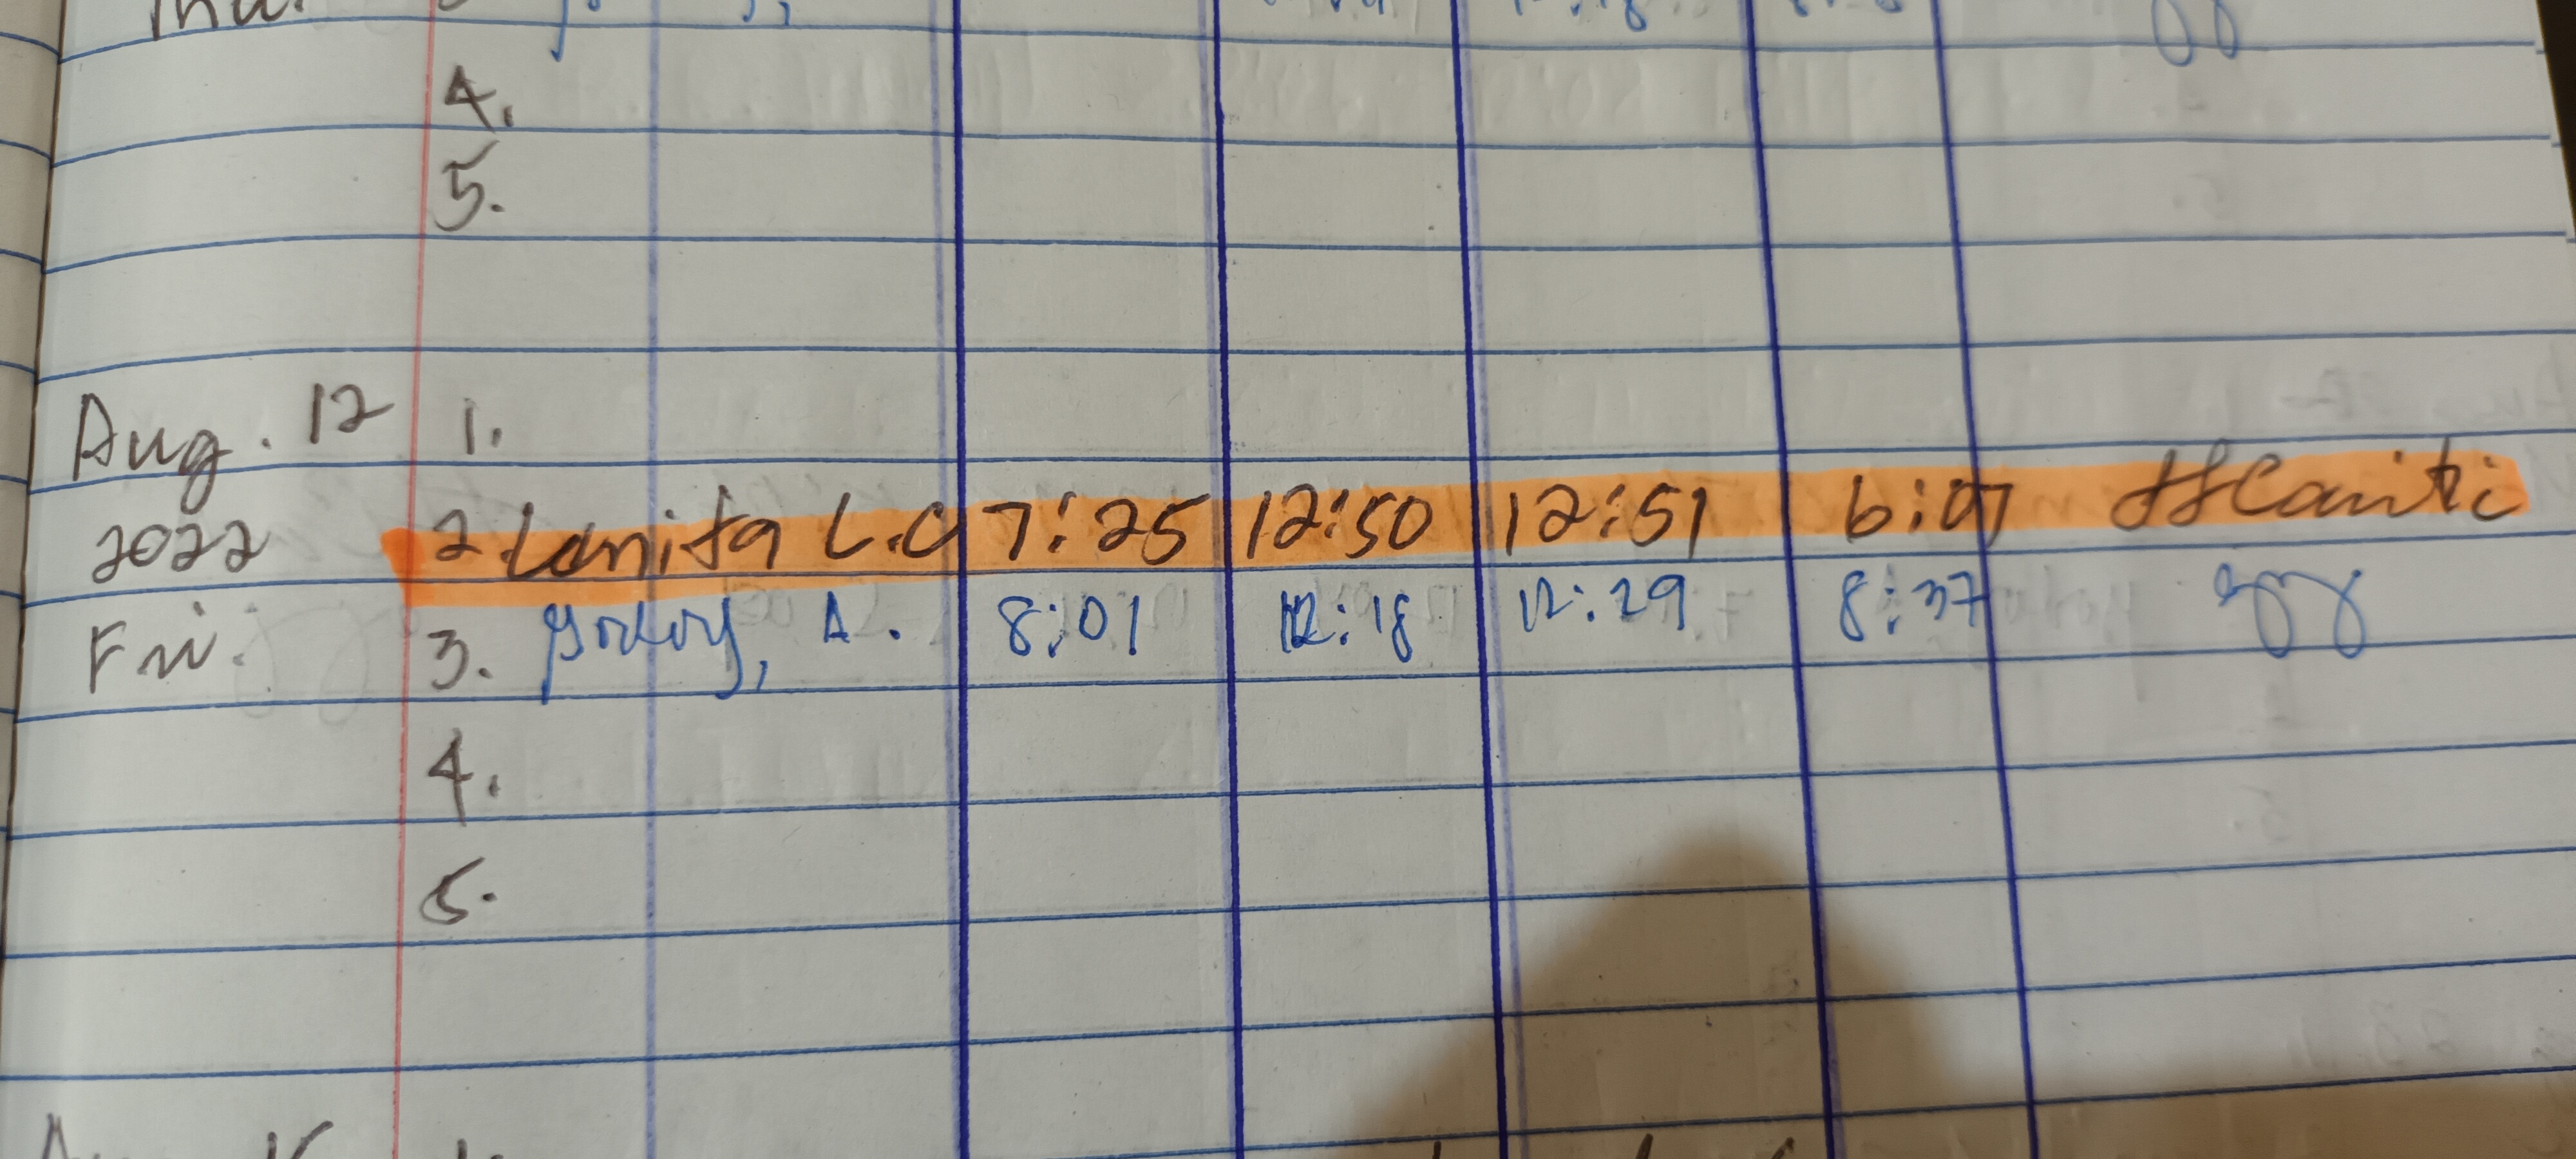 4.
5.
Aug. 12 1.
2022 2. Lanita L.C 7:25 12:50 12:51 6:07
Fri. 3. Godoy, A. 8:01 12:18 12:29 8:37
4.
5.